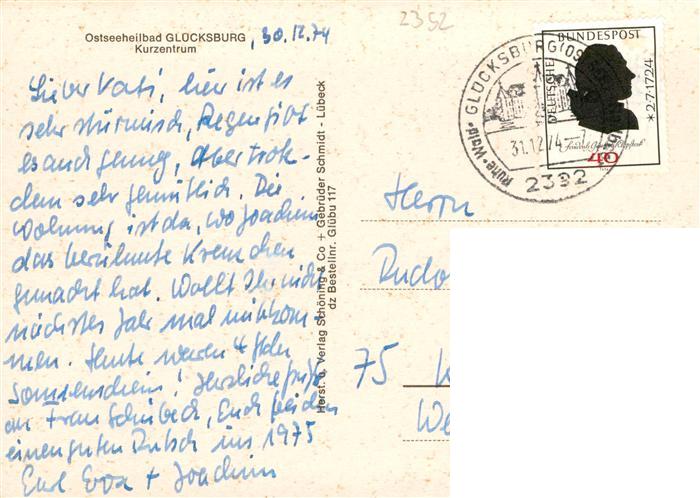 Ostseeheilbad GLÜCKSBURG
Kurzentrum
, 30.12.74
Lieber Vati, hier ist es
sehr stürmisch, Regen gibt
es auch genug, aber trotz-
dem sehr gemütlich. Die
Wohnung ist da, wo Joachim
das berühmte
gemacht hat. Wollt Ihr nicht
nächstes Jahr mal mitkom-
men. Heute waren 4 Std
Sonnenschein! Herzliche Grüße
an Frau Schübeck, Euch beiden
einen guten Rutsch ins 1975
Eure Eva + Joachim
Horst. o. Verlag Schöning & Co + Gebrüder Schmidt - Lübeck
dz Bestellnr. Glübu 117
2392
GLÜCKSBURG (OS
Ruhe · Wald ·
31.12.74
2392
DEUTSCHE BUNDESPOST
* 2·7·1724
Friedrich Gottlieb Klopstock
Herrn
Rudo
75 K
We